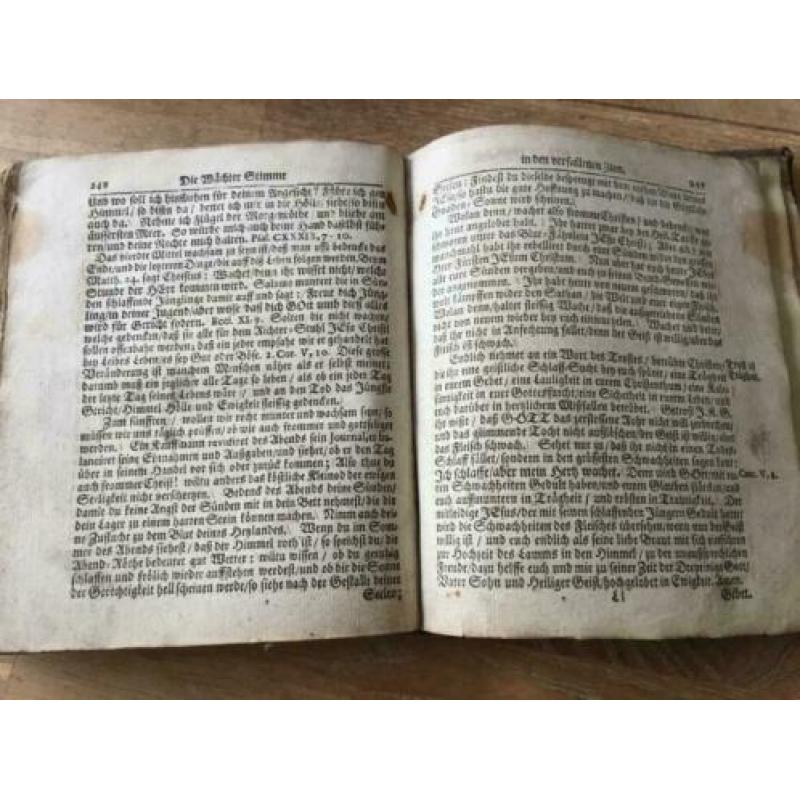 240 Die Wächter Stimme
und wo soll ich hinfliehen für deinem Angesicht? Führe ich gen
Himmel/ so bistu da/ bettet ich mir in die Hölle/ siehe/ so bistu
auch da. Nehme ich Flügel der Morgenröthe/ und bliebe am
äussersten Meer. So würde mich auch deine Hand daselbst füh-
ren/und deine Rechte mich halten. Psal. CXXXIX, 7-10.
Das vierdte Mittel wachsam zu seyn ist/daß man offt bedencke das
Ende/und die letzeren Dinge/die auff das Leben folgen werden. Denn
Matth. 24. sagt Christus: Wachet/denn ihr wisset nicht/welche
Stunde der HErr kommen wird. Salomo muntert die in Sün-
den schlaffende Jünglinge damit auff und sagt: Freue dich Jüng-
ling/in deiner Jugend/aber wisse daß dich GOtt umb dest alles
wird für Gericht fodern. Eccl. XI. 9. Solten die nicht wachen
welche gedencken/daß sie alle für dem Richter-Stuhl JEsu Christi
sollen offenbahr werden/ daß ein jeder empfahe wie er gehandelt hat
bey Leibes Leben/es sey Gut oder Böse. 2. Cor. V, 10. Diese grosse
Veränderung ist manchem Menschen näher als er selbst meinet;
darumb muß ein jeglicher alle Tage so leben/ als ob ein jeder Tag
der letzte Tag seines Lebens wäre/ und an den Tod das Jüngste
Gericht/Himmel Hölle und Ewigkeit fleissig gedencken.
Zum fünfften/ wollen wir recht munter und wachsam seyn/ so
müssen wir uns täglich prüffen/ ob wir auch frommer und gottseliger
werden. Ein Kauffmann revidiret des Abends sein Journal, er ba-
lanciret seine Einnahmen und Außgaben/und siehet/ ob er den Tag
über in seinem Handel vor sich oder zurück kommen; Also thu du
auch frommer Christ! wiltu anders das köstliche Kleinod der ewigen
Seeligkeit nicht verschertzen. Bedenck des Abends deine Sünden/
damit du keine Angst der Sünden mit in dein Bett nehmest/die dir
dein Lager zu einem harten Stein können machen. Nimm auch dei-
ne Zuflucht zu dem Blut deines Heylandes. Wenn du im Som-
mer des Abends siehest/ daß der Himmel roth ist/ so sprichstu/ die
Abend-Röthe bedeutet gut Wetter: wiltu wissen/ ob du geruhig
schlaffen und frölich wieder auffstehen werdest/und ob dir die Sonne
der Gerechtigkeit hell scheinen werde/so siehe nach der Gestalt deiner
Seelen;
in den verfallenen Zion. 241
Seelen: Findest du dieselbe besprenget mit dem rothen Blute deines
JEsu/ so hastu die gute Hoffnung zu machen/daß dir die Gerechtig-
keits Sonne wird scheinen.
Wolan denn/ wachet also fromme Christen/ und bedencket was
ihr denn angelobet habt. Ihr hattet zwar bey der Heil. Tauffe ge-
schworen unter das Blut-Fähnlein JEsu Christi; Aber ach!
manchmahl habt ihr rebelliret durch eure Sünden wider den
Heer Fürsten JEsum Christum. Nun aber hat euch heute JEsus
alle eure Sünden vergeben/und euch zu seinen Bunds-Genossen wie-
der angenommen. Ihr habt heute von neuem geschworen/ daß ihr
wolt kämpffen wider den Sathan/ die Welt und eure eigene Fleisch
Wolan denn/haltet fleissig Wacht/ daß die außgetriebene Sünden
nicht von neuem wieder bey euch einziehen. Wachet und betet/
daß ihr nicht in Anfechtung fallet/denn der Geist ist willig/aber das
Fleisch ist schwach.
Endlich nehmet an ein Wort des Trostes/ betrübte Christen/ Trost in
die ihr eine geistliche Schlaff-Sucht bey euch spüret/ eine Trägheit Trägheit.
in eurem Gebet/ eine Lauligkeit in eurem Christenthum/ eine Kälte
in eurer Gottesfurcht/ eine Sicherheit in eurem Leben/ und
euch darüber in hertzlichem Mißfallen betrübet. Getrost J.K.G.
ihr wisset/ daß GOTT das zerstossene Rohr nicht will zerbrechen/
und das glimmende Tocht nicht außlöschen/der Geist ist willig/aber
das Fleisch schwach. Sehet nur zu/ daß ihr nicht in einen Todes-
Schlaff fallet/sondern in den grössesten Schwachheiten sagen könnt:
Ich schlaffe/aber mein Hertz wachet. Denn wird GOtt mit eu- Cant. V, 2.
ren Schwachheiten Gedult haben/und euren Glauben stärcken/und
euch auffmuntern in Trägheit/ und trösten in Traurigkeit. Der
mitleidige JEsus/der mit seinen schlaffenden Jüngern Gedult hatte/
wird die Schwachheiten des Fleisches übersehen/wenn nur der Geist
willig ist/ und euch endlich als seine liebe Braut mit sich einführen
zur Hochzeit des Lamms in den Himmel/ zu der unaussprechlichen
Freude/dazu helffe euch und mir zu seiner Zeit der Dreyeinige Gott/
Vater Sohn und Heiliger Geist/ hochgelobet in Ewigkeit. Amen.
Ll Gebet.